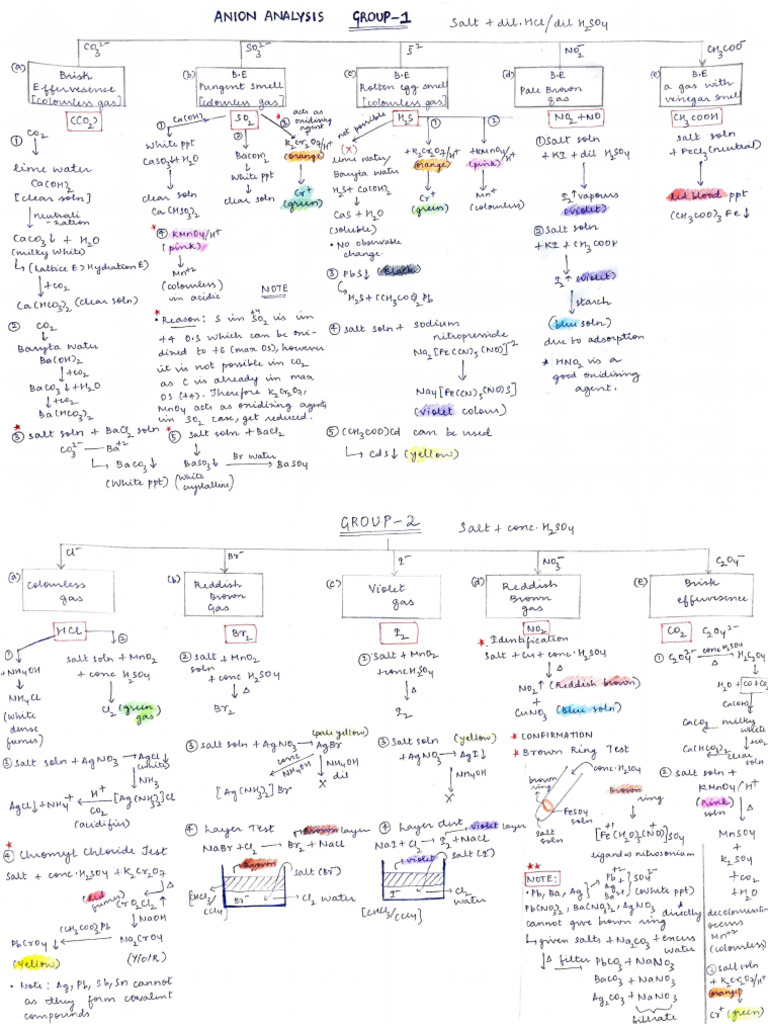 ANION ANALYSIS GROUP-1 Salt + dil. HCl/dil H2SO4
CO3^2- SO3^2- S^2- NO2^- CH3COO^-
(a) Brisk Effervesence [colourless gas]
CO2
① CO2
lime water
Ca(OH)2
[clear soln]
neutralization
CaCO3↓ + H2O
(milky white)
↳ (Lattice E > Hydration E)
+CO2
Ca(HCO3)2 (clear soln)
② CO2
Baryta water
Ba(OH)2
+CO2
BaCO3↓ + H2O
+CO2
Ba(HCO3)2
③ Salt soln + BaCl2 soln
CO3^2- — Ba^+2
↳ BaCO3↓
(White ppt)
(b) B.E
Pungent smell
[colourless gas]
SO2
① Ca(OH)2
White ppt
CaSO3↓+H2O
clear soln
Ca(HSO3)2
②
Ba(OH)2
White ppt
clear soln
③ acts as oxidising agent
K2Cr2O7/H+
(orange)
Cr+
(green)
④ KMnO4/H+
(pink)
Mn+2
(colourless)
in acidic
NOTE
• Reason: S in SO2 is in
+4 O.S which can be oxi-
dized to +6 (max OS), however
it is not possible in CO2
as C is already in max
OS (+4). Therefore K2Cr2O7,
MnO4 acts as oxidizing agent
in SO2 case, get reduced.
⑤ Salt soln + BaCl2
BaSO3↓ Br water → BaSO4
(White crystalline)
(c) B.E
Rotten egg smell
[colourless gas]
H2S
not possible
(X)
lime water/
Baryta water
H2S + Ca(OH)2
CaS + H2O
(soluble)
• No observable
change.
① + K2Cr2O7/H+
(orange)
Cr+
(green)
② +KMnO4/H+
(pink)
Mn+
(colourless)
③ PbS↓ (Black)
H2S + (CH3COO)2Pb
④ salt soln + sodium
nitroprusside
Na2[Fe(CN)5(NO)]^-2
Na4[Fe(CN)5(NOS)]
(violet colour)
⑤ (CH3COO)Cd can be used
↳ CdS↓ (yellow)
(d) B.E
Pale Brown
gas
NO2+NO
① Salt soln
+ KI + dil H2SO4
I2↑ vapours
(violet)
② Salt soln
+KI + CH3COOH
I2↑ (violet)
starch
(blue soln)
due to adsorption
* HNO2 is a
good oxidising
agent.
(e) a gas with
vinegar smell
CH3COOH
salt soln
+ FeCl3 (neutral)
red blood ppt
(CH3COO)3Fe↓
GROUP-2 Salt + conc. H2SO4
Cl^- Br^- I^- NO3^- C2O4^-
(a) Colourless
gas
HCl
①
+NH4OH
NH4Cl
(White
dense
fumes)
②
salt soln + MnO2
+ conc H2SO4
Cl2 (green gas)
③ Salt soln + AgNO3 → AgCl↓
(white)
NH3
AgCl↓ + NH4+ ← H+ [Ag(NH3)2]Cl
CO2
(acidifies)
④ Chromyl Chloride Test
Salt + conc. H2SO4 + K2Cr2O7
∆
(red fumes) CrO2Cl2↑
NaOH
PbCrO4 ← (CH3COO)2Pb Na2CrO4
(yellow) (Y/O/R)
• Note: Ag, Pb, Sb, Sn cannot
as they form covalent
compounds
(b) Reddish
Brown
Gas
Br2
② Salt + MnO2
soln
+ conc H2SO4
∆
Br2
③ Salt soln + AgNO3 → AgBr
(pale yellow)
conc NH4OH
NH4OH dil
[Ag(NH3)2]Br X
④ Layer Test Brown layer
NaBr + Cl2 → Br2 + NaCl
Brown salt (Br^-)
[CHCl3/
CCl4] Br^- Cl2 water
(c) Violet
gas
I2
② Salt + MnO2
+conc H2SO4
∆
I2
③ Salt soln (yellow)
+AgNO3 → AgI↓
NH4OH
X
④ Layer test violet layer
NaI + Cl2 → I2 + NaCl
violet salt (I^-)
I^- Cl2 water
[CHCl3/CCl4]
(d) Reddish
Brown
gas
NO2
* Identification
Salt + Cu + conc. H2SO4
∆
NO2↑ (Reddish brown)
+
CuNO3 (Blue soln)
* CONFIRMATION
* Brown Ring Test
brown ring conc. H2SO4
Brown ring
FeSO4 soln
salt soln
[Fe(H2O)5(NO)]SO4
ligand is nitrosonium
NOTE:
• Pb, Ba, Ag Pb+2 Ag+ Ba+2 SO4^2-
(White ppt)
Pb(NO3)2, Ba(NO3)2, AgNO3 directly
cannot give brown ring
↳ given salts + Na2CO3 + excess
water
∆ filter PbCO3 + NaNO3
BaCO3 + NaNO3
Ag2CO3 + NaNO3
filtrate
(e) Brisk
effervesence
CO2 C2O4^2-
① C2O4^2- conc H2SO4 ∆ H2C2O4
H2O + CO+CO2
Ca(OH)2
CaCO3 milky white
+CO2
Ca(HCO3)2 clear soln
② Salt soln +
KMnO4/H+
(pink) soln
∆
MnSO4
+
K2SO4
+CO2
+H2O
decolourisation
occurs
Mn^+2
(colourless)
③ salt soln
+ K2Cr2O7/H+
(orange)
Cr+ (green)